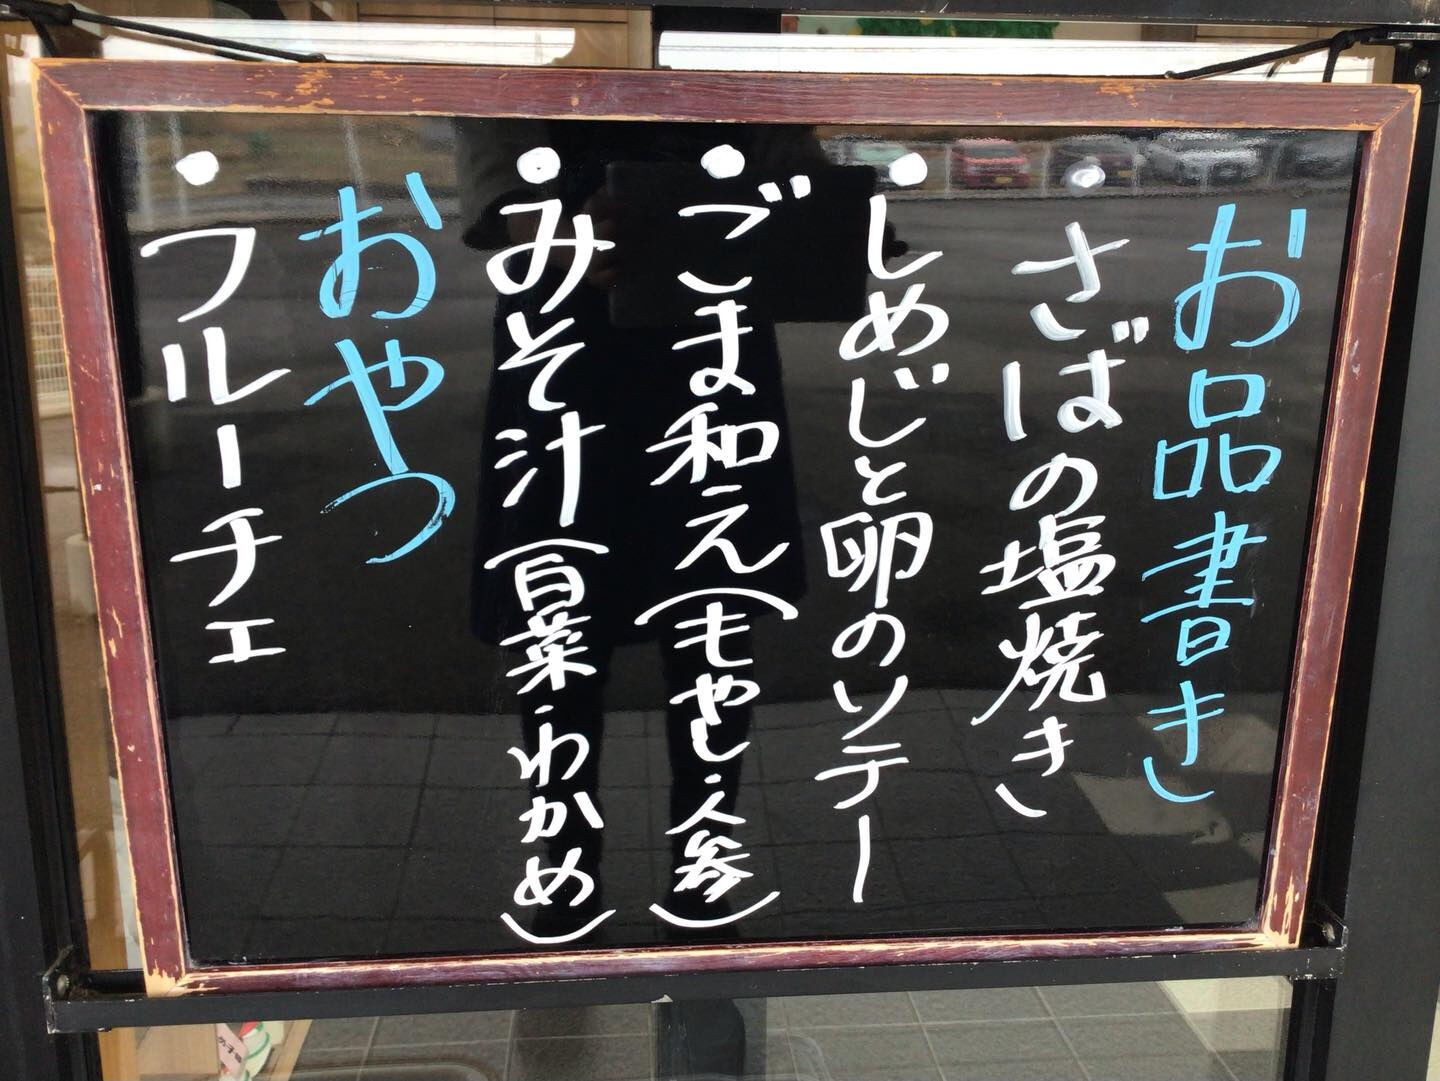 お品書き
・さばの塩焼き
・しめじと卵のソテー
・ごま和え(もやし・人参)
・みそ汁(白菜・わかめ)
おやつ
・フルーチェ